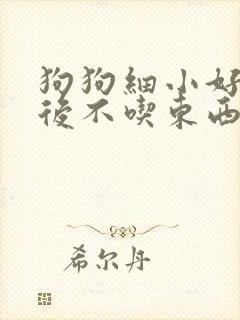 狗狗細小好
後不喫東西
希尔丹